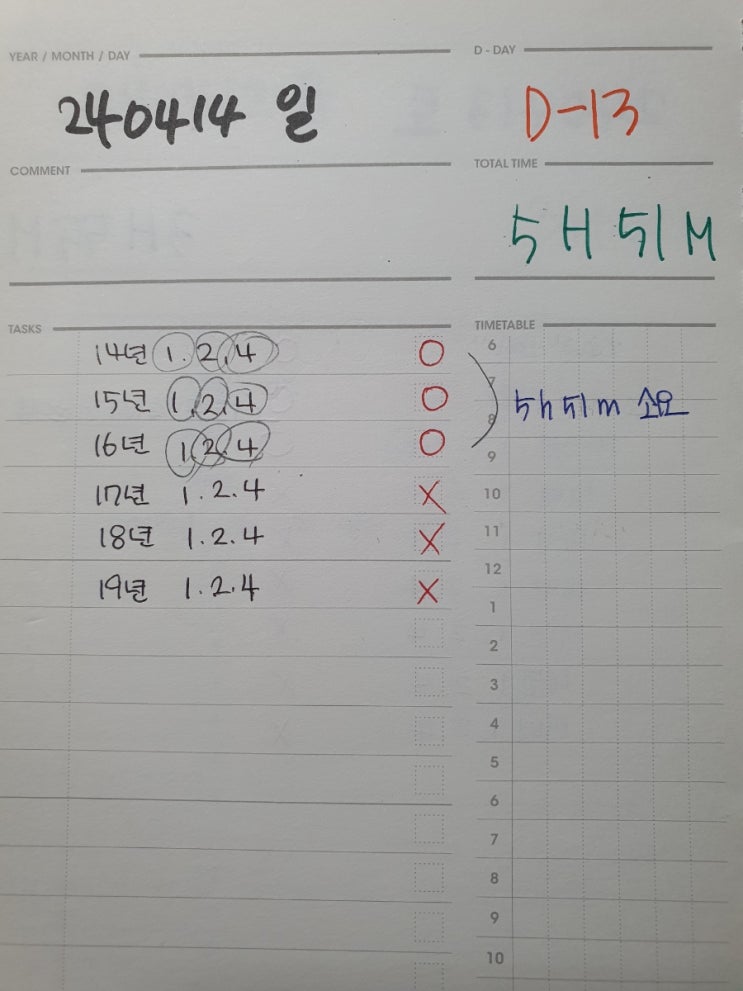 YEAR / MONTH / DAY
240414 일
D - DAY
D-13
COMMENT
TOTAL TIME
5H 51M
TASKS
14년 1.2.4 O
15년 1.2.4 O
16년 1.2.4 O
17년 1.2.4 X
18년 1.2.4 X
19년 1.2.4 X
TIMETABLE
5h 51m 소요
6
7
8
9
10
11
12
1
2
3
4
5
6
7
8
9
10